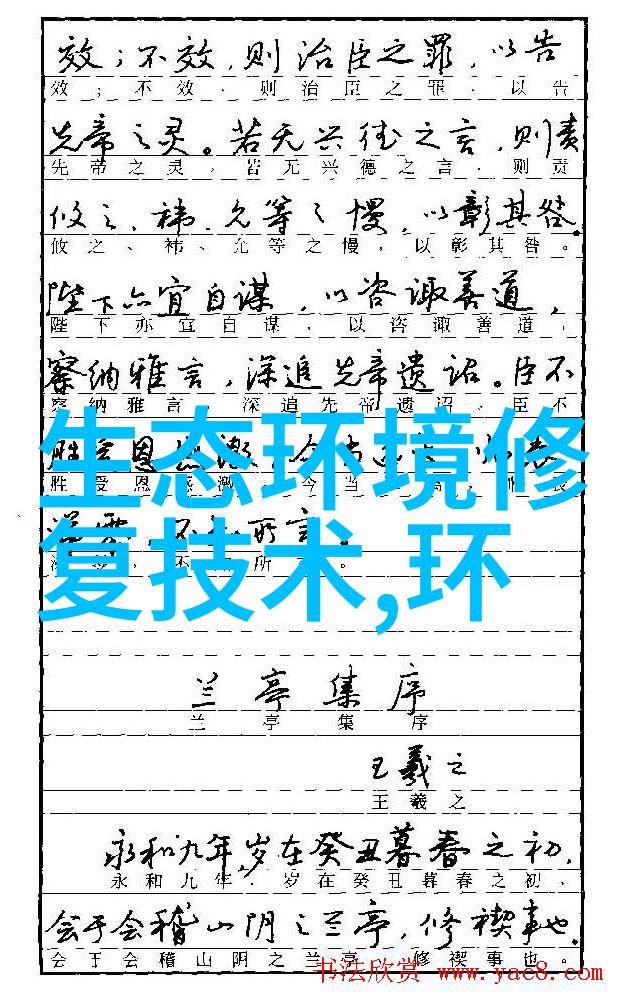 效；不效，则治臣之罪，以告
效；不效、则治臣之罪、以告
先帝之灵。若无兴德之言，则责
先帝之灵，若无兴德之言、则责
攸之、祎、允等之慢，以彰其咎。
攸之、祎、允等之慢，以彰其咎。
陛下亦宜自谋，以咨诹善道，
陛下亦宜自谋，以咨诹善道，
察纳雅言，深追先帝遗诏。臣不
察纳雅言，深追先帝遗诏。臣不
生态环境修
胜受恩感激。今当
胜受恩感激，今当
复技术,环
不 所言。
不 所
兰亭集序
兰亭集序
王羲之
王羲之
永和九年，岁在癸丑暮春之初，
永和九年，岁在癸丑暮春之初、
会于会稽山阴之兰亭，修禊事也。
会于会稽山阴之兰亭，修禊事也。
书法欣赏 www.yac8.com